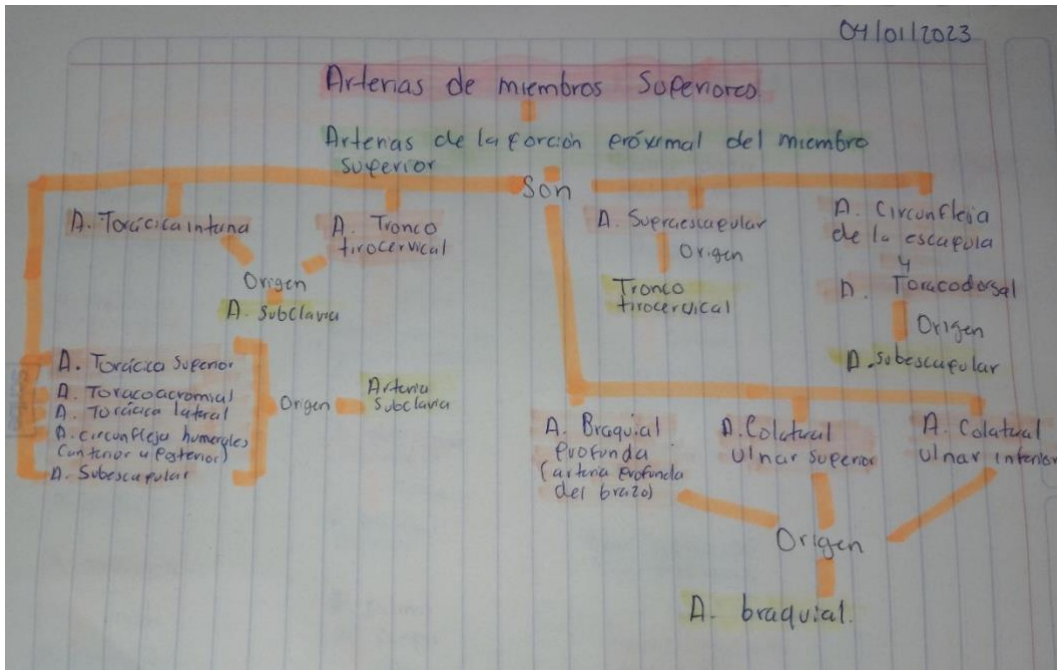 04/01/2023
Arterias de miembros Superiores
Arterias de la porción próximal del miembro
superior
Son
A. Torácica interna
A. Tronco
tirocervical
Origen
A. Subclavia
A. Supraescapular
Origen
Tronco
tirocervical
A. Circunfleja
de la escapula
y
A. Toracodorsal
Origen
A. subescapular
A. Torácica Superior
A. Toracoacromial
A. Torácica lateral
A. circunfleja humerales
(anterior y Posterior)
A. Subescapular
Origen
Arteria
Subclavia
A. Braquial
profunda
(arteria profunda
del brazo)
A. Colateral
Ulnar Superior
A. Colateral
Ulnar inferior
Origen
A. braquial.